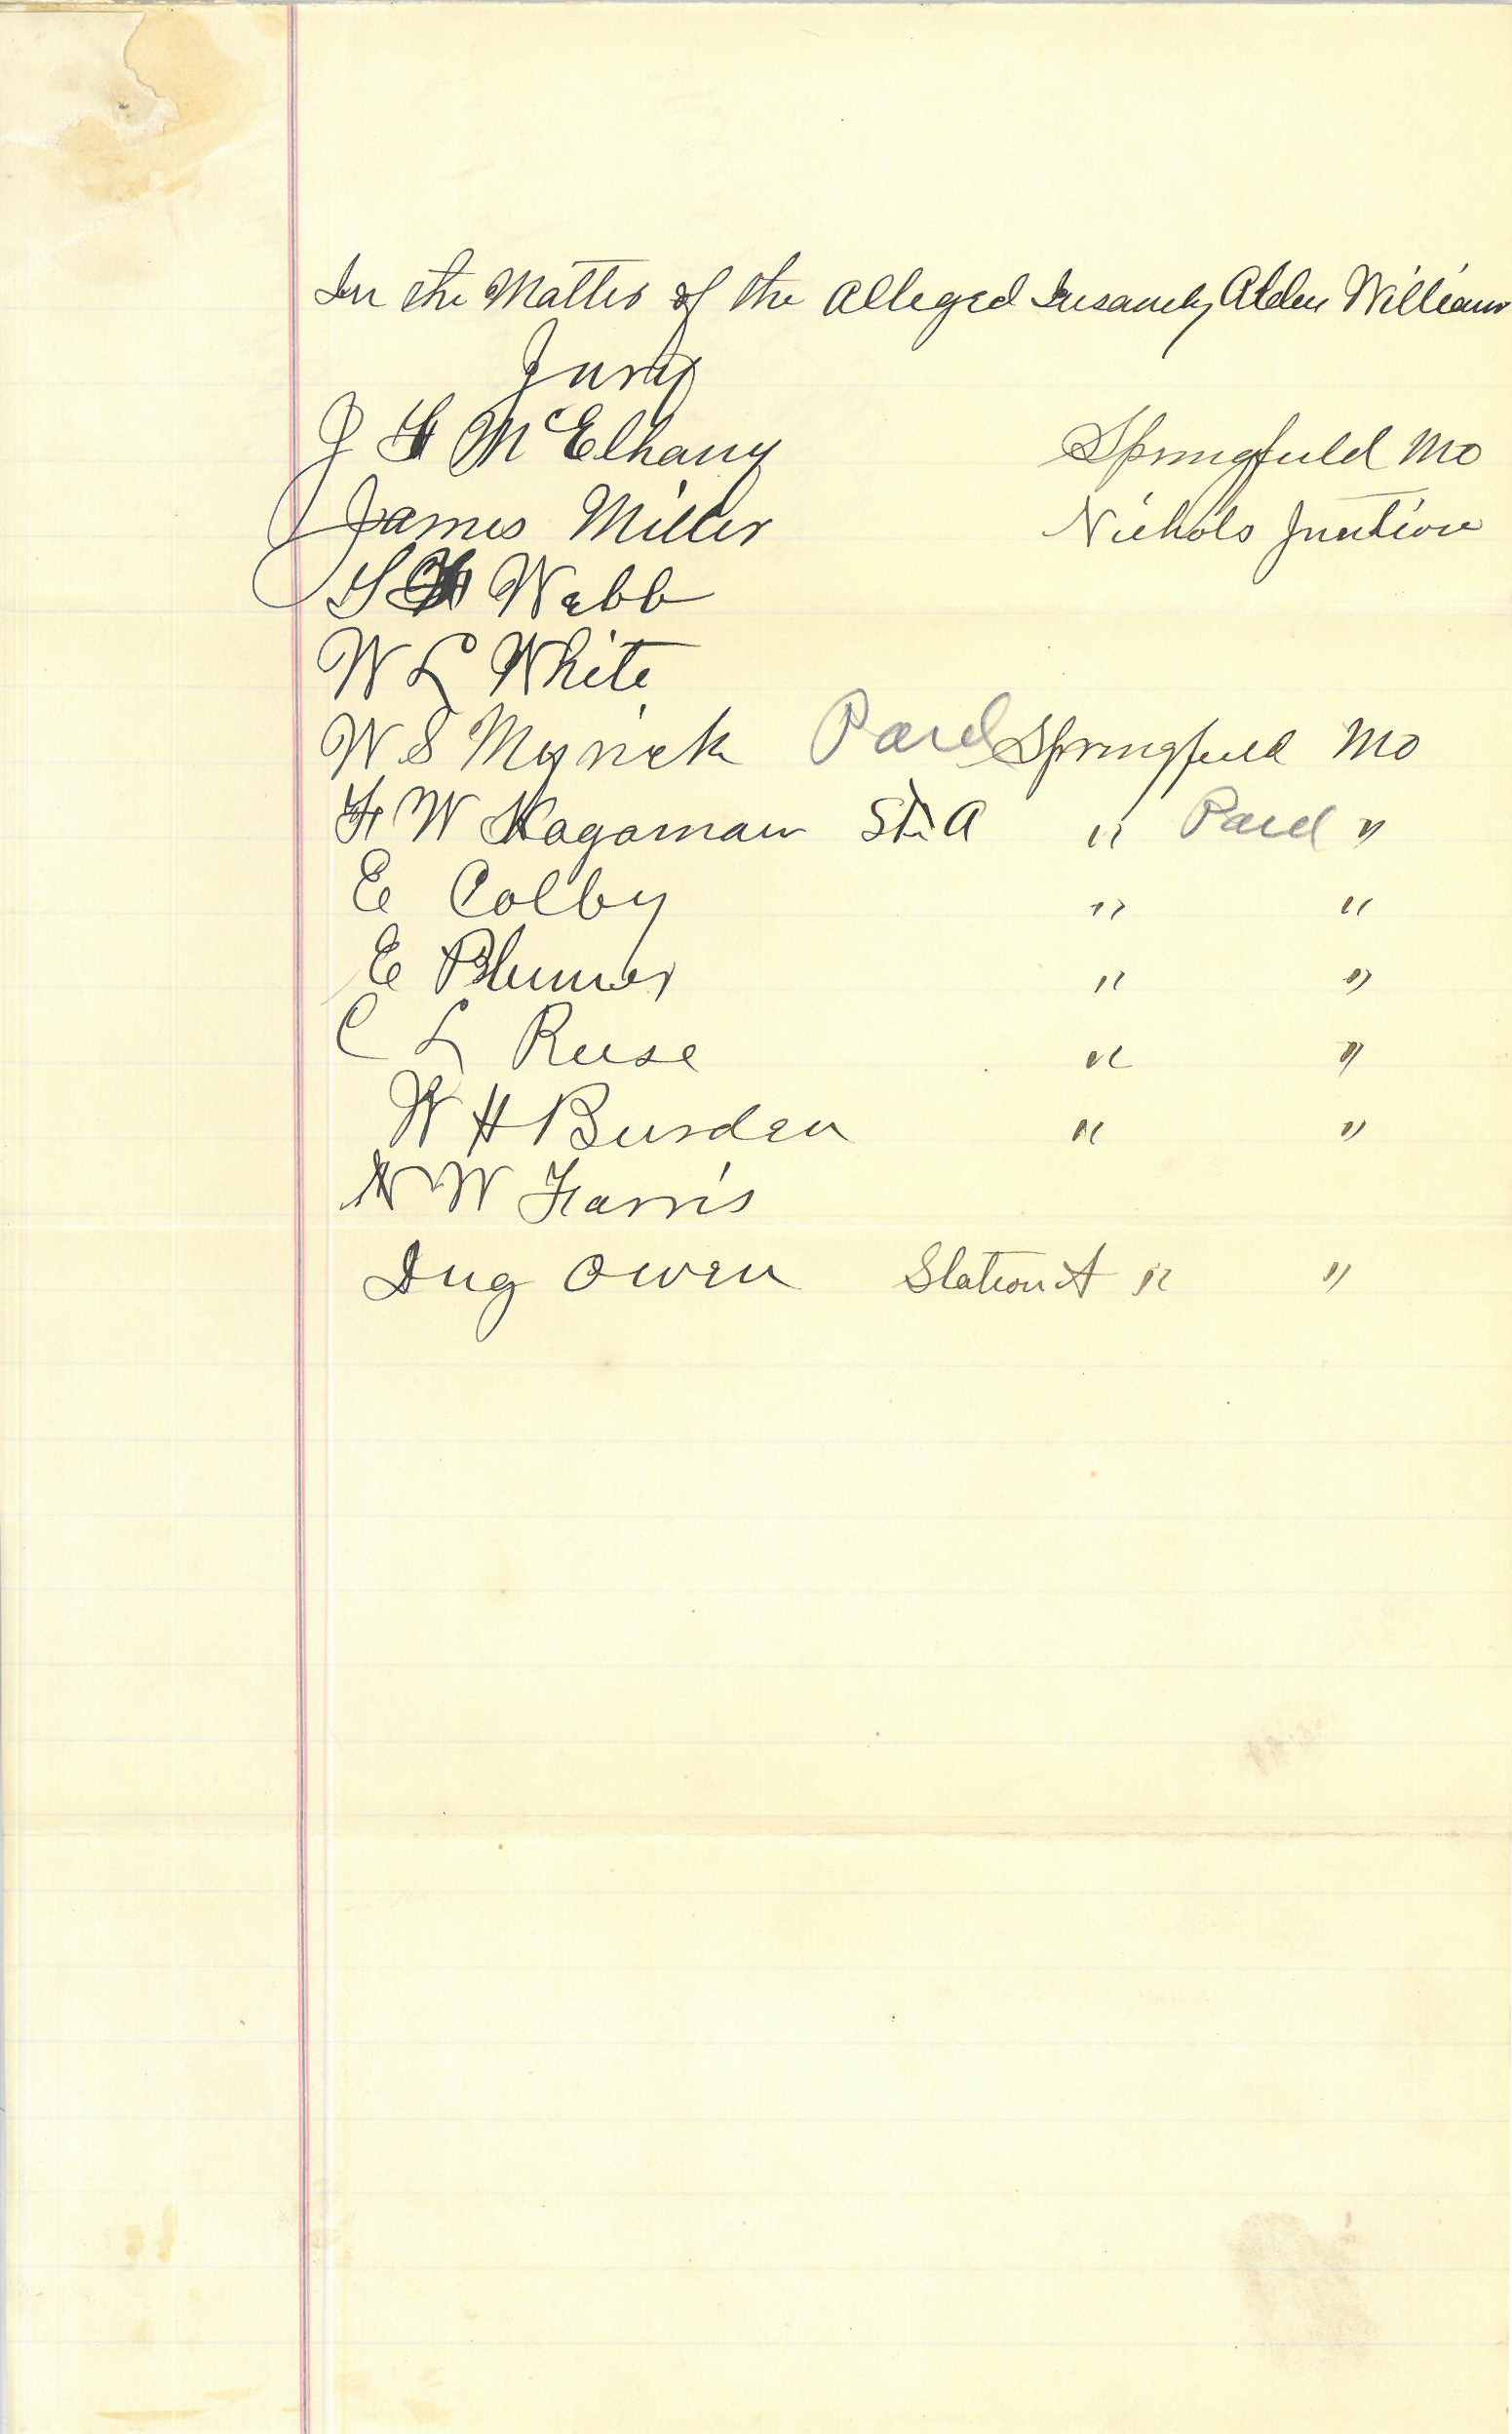 In the Matter of the Alleged Insanity Alden Williams
Jury
J F McElhany Springfield Mo
James Miller Nichols Junction
S F Webb
W L White
W S Myrick Paid Springfield Mo
F W Hagaman St. A " Paid "
E Colby " "
E Plumer " "
C L Ruse " "
W H Burden " "
N W Farris
Dug Owen Station A " "